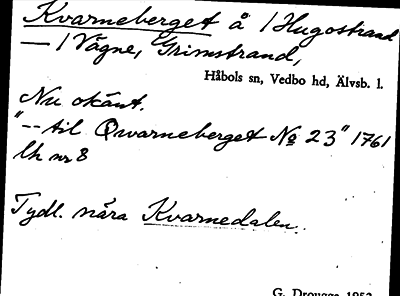 Kvarneberget å / Hugostrand
— / Vägne, Grimstrand,
Håbols sn, Vedbo hd, Älvsb. l.
Nu okänt.
"-- til Qwarneberget No 23" 1761
lh nr 8
Tydl. nära Kvarnedalen.
G. Drougge 1953